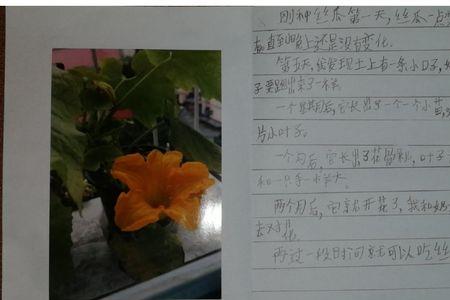 刚种丝瓜第一天,丝瓜一点
直到晚上还是没有变化.
第五天,我发现土上有一条小口子,
子要跑出来了一样.
一个星期后,它长出了一个一个小芽,
片小叶子。
一个月后,它长出了花 叶子
和一只手一样大。
两个月后,它就开花了,我和
去对花
再过一段时间就可以吃丝